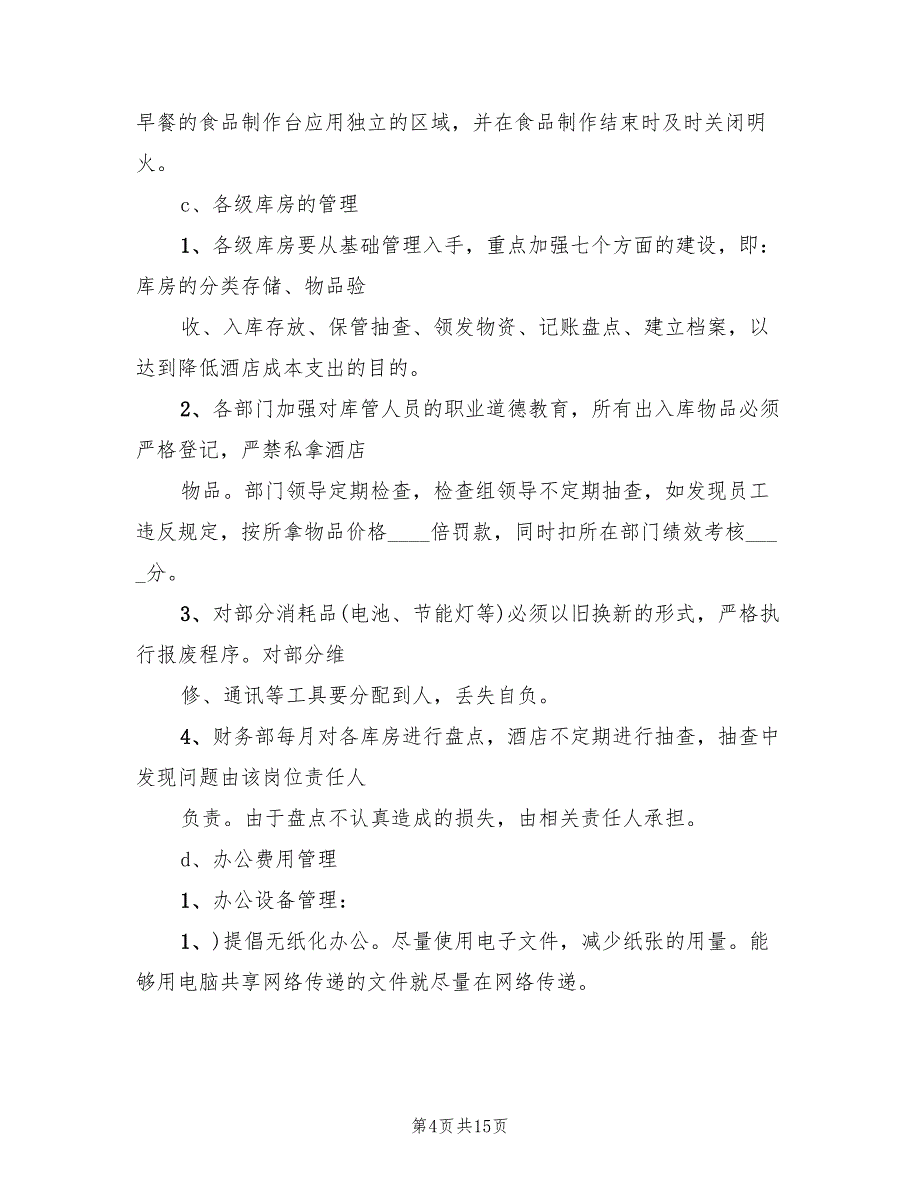 早餐的食品制作台应用独立的区域，并在食品制作结束时及时关闭明
火。
c、各级库房的管理
1、各级库房要从基础管理入手，重点加强七个方面的建设，即：
库房的分类存储、物品验
收、入库存放、保管抽查、领发物资、记账盘点、建立档案，以
达到降低酒店成本支出的目的。
2、各部门加强对库管人员的职业道德教育，所有出入库物品必须
严格登记，严禁私拿酒店
物品。部门领导定期检查，检查组领导不定期抽查，如发现员工
违反规定，按所拿物品价格____倍罚款，同时扣所在部门绩效考核___
_分。
3、对部分消耗品(电池、节能灯等)必须以旧换新的形式，严格执
行报废程序。对部分维
修、通讯等工具要分配到人，丢失自负。
4、财务部每月对各库房进行盘点，酒店不定期进行抽查，抽查中
发现问题由该岗位责任人
负责。由于盘点不认真造成的损失，由相关责任人承担。
d、办公费用管理
1、办公设备管理：
1、)提倡无纸化办公。尽量使用电子文件，减少纸张的用量。能
够用电脑共享网络传递的文件就尽量在网络传递。
第4页共15页